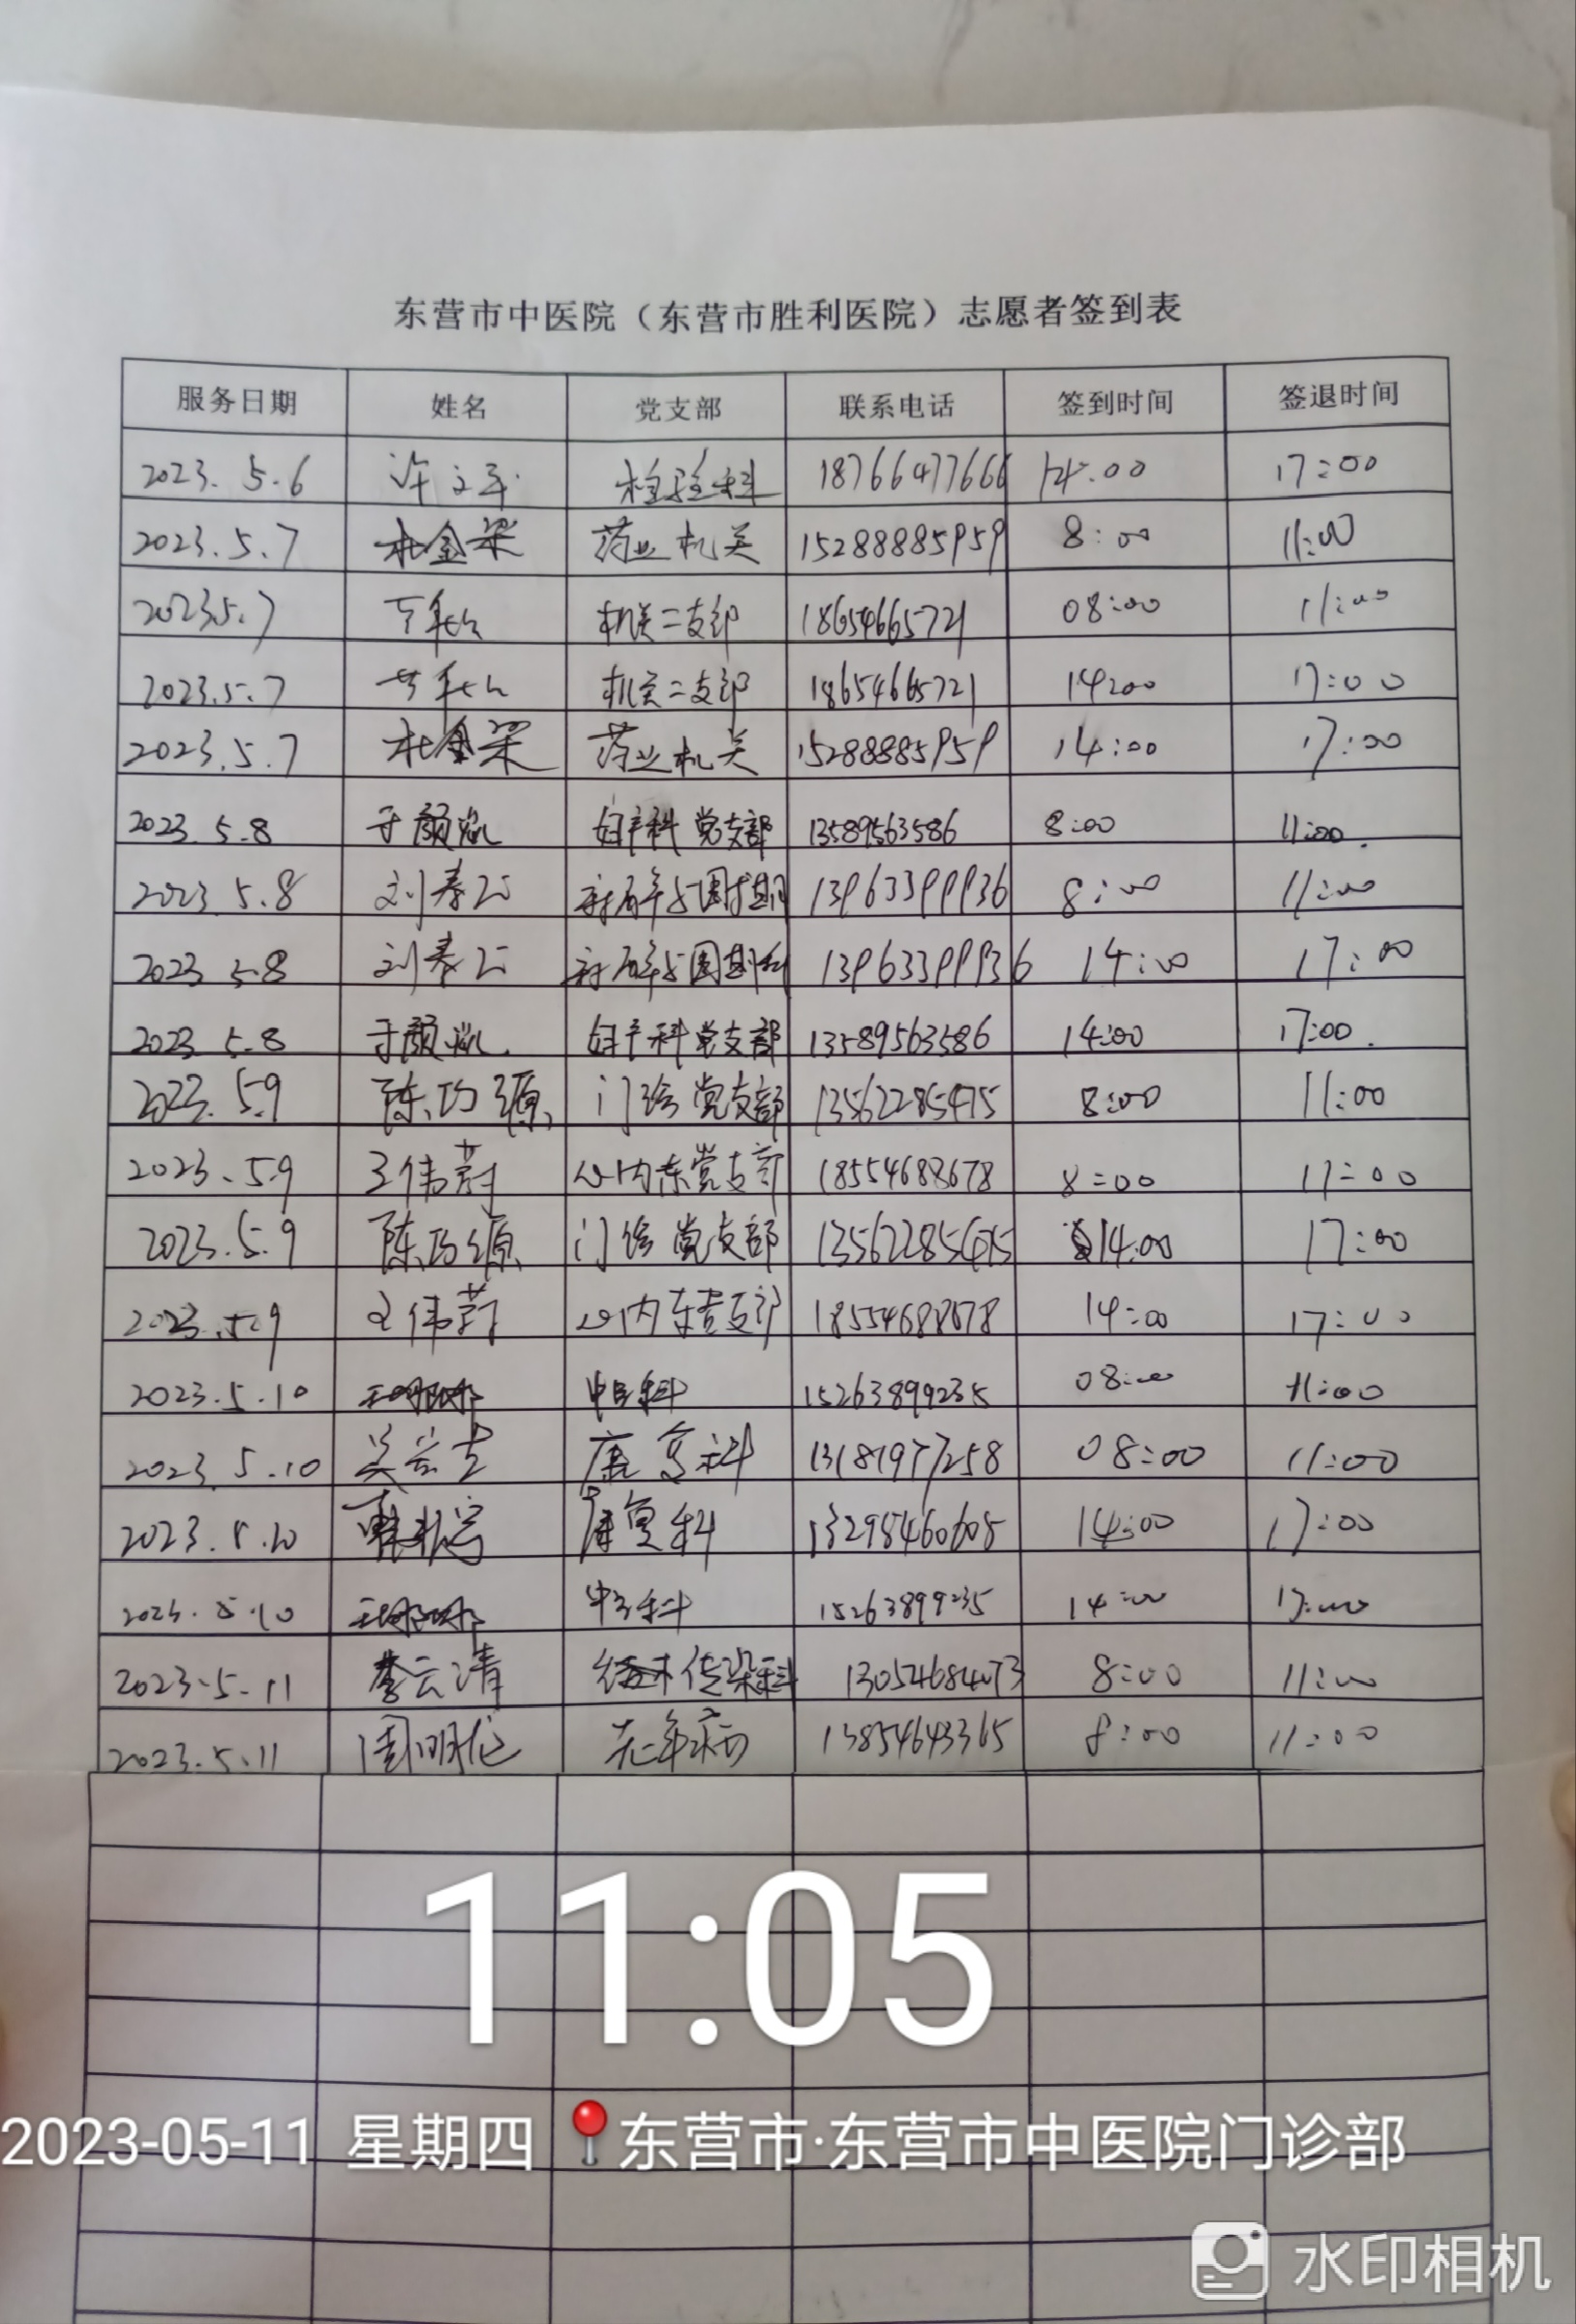 东营市中医院（东营市胜利医院）志愿者签到表
服务日期 姓名 党支部 联系电话 签到时间 签退时间
2023.5.6 检验科 18766477666 14:00 17:00
2023.5.7 杜金梁 药业机关 15288885959 8:00 11:00
2023.5.7 机关二支部 18654665721 08:00 11:00
2023.5.7 机关二支部 18654665721 14:00 17:00
2023.5.7 杜金梁 药业机关 15288885959 14:00 17:00
2023.5.8 于颜 妇产科党支部 13589563586 8:00 11:00
2023.5.8 刘春 13963399936 8:00 11:00
2023.5.8 刘春 13963399936 14:00 17:00
2023.5.8 于颜 妇产科党支部 13589563586 14:00 17:00
2023.5.9 陈巧源 门诊党支部 13562285475 8:00 11:00
2023.5.9 王伟蔚 心内东党支部 18554688678 8:00 11:00
2023.5.9 陈巧源 门诊党支部 13562285475 14:00 17:00
2023.5.9 王伟蔚 心内东党支部 18554688678 14:00 17:00
2023.5.10 中医科 15263899235 08:00 11:00
2023.5.10 康复科 13181977258 08:00 11:00
2023.5.10 康复科 13298460605 14:00 17:00
2023.5.10 15263899235 14:00 17:00
2023.5.11 李云清 传染科 13054684073 8:00 11:00
2023.5.11 周明伦 老年病 13854643365 8:00 11:00
11:05
2023-05-11 星期四 东营市·东营市中医院门诊部
水印相机